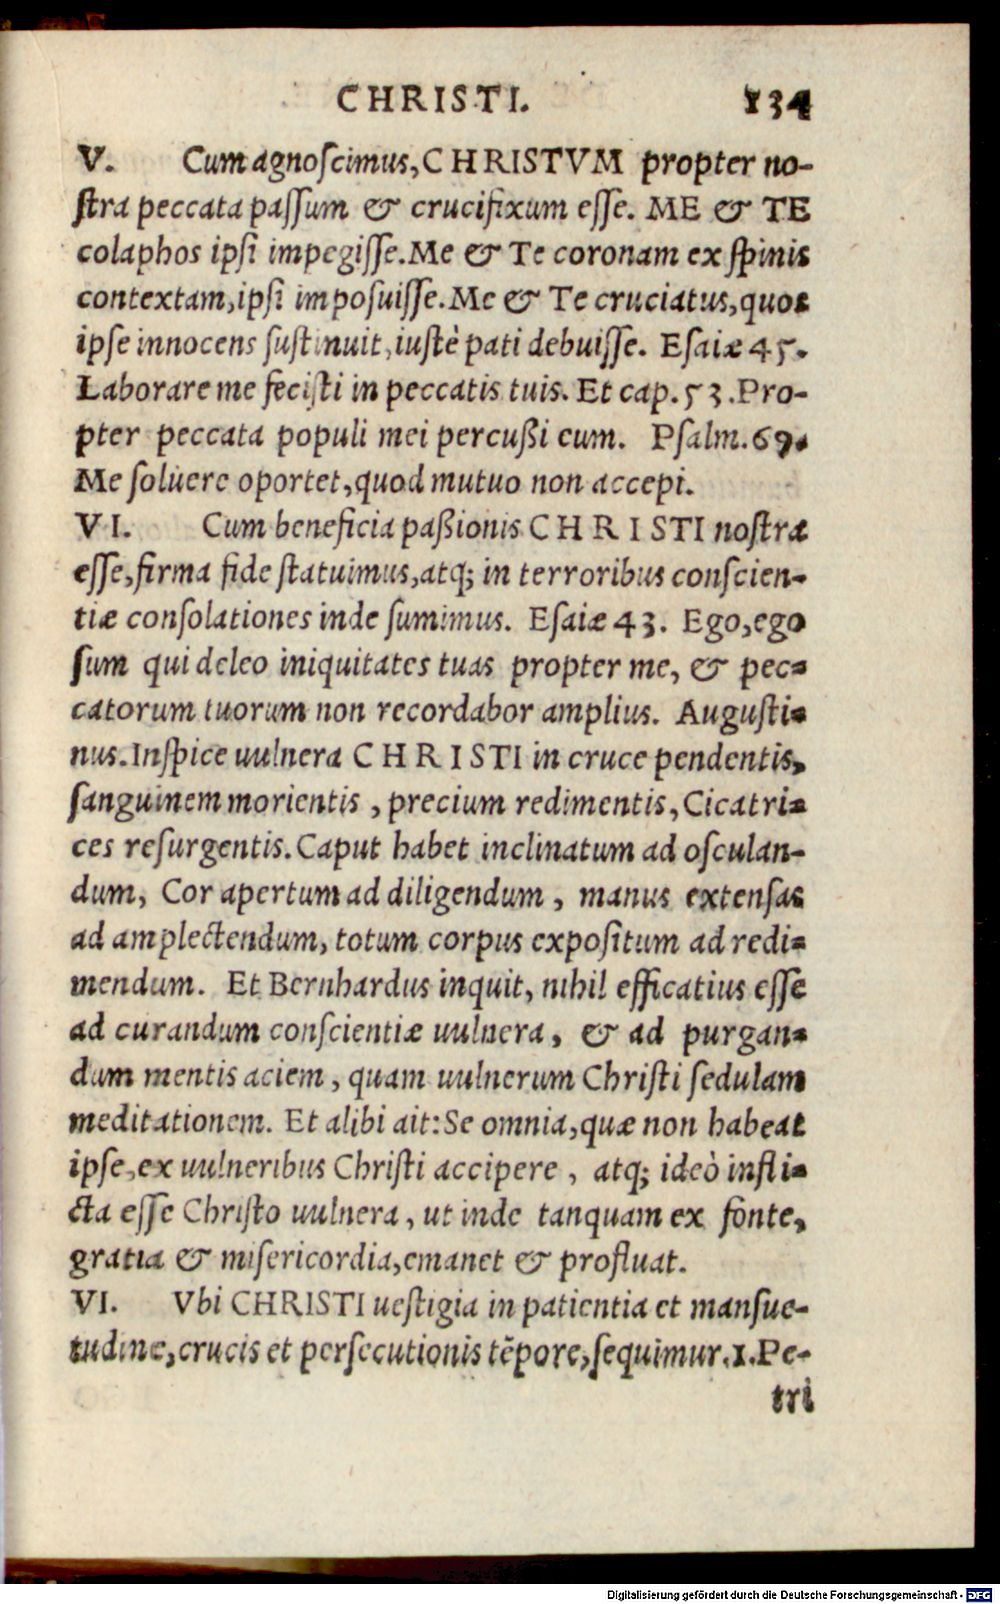 CHRISTI. 134
V. Cum agnoſcimus, CHRISTVM propter no-
ſtra peccata paſſum & crucifixum eſſe. ME & TE
colaphos ipſi impegiſſe. Me & Te coronam ex ſpinis
contextam, ipſi impoſuiſſe. Me & Te cruciatus, quos
ipſe innocens ſuſtinuit, iuſtè pati debuiſſe. Eſaiæ 45.
Laborare me feciſti in peccatis tuis. Et cap. 53. Pro-
pter peccata populi mei percußi eum. Pſalm. 69.
Me ſoluere oportet, quod mutuo non accepi.
VI. Cum beneficia paßionis CHRISTI noſtræ
eſſe, firma fide ſtatuimus, atq; in terroribus conſcien-
tiæ conſolationes inde ſumimus. Eſaiæ 43. Ego, ego
ſum qui deleo iniquitates tuas propter me, & pec-
catorum tuorum non recordabor amplius. Auguſti-
nus. Inſpice uulnera CHRISTI in cruce pendentis,
ſanguinem morientis, precium redimentis, Cicatri-
ces reſurgentis. Caput habet inclinatum ad oſculan-
dum, Cor apertum ad diligendum, manus extenſas
ad amplectendum, totum corpus expoſitum ad redi-
mendum. Et Bernhardus inquit, nihil efficatius eſſe
ad curandum conſcientiæ uulnera, & ad purgan-
dam mentis aciem, quam uulnerum Chriſti ſedulam
meditationem. Et alibi ait: Se omnia, quæ non habeat
ipſe, ex uulneribus Chriſti accipere, atq; ideò infli-
cta eſſe Chriſto uulnera, ut inde tanquam ex fonte,
gratia & miſericordia, emanet & profluat.
VI. Vbi CHRISTI ueſtigia in patientia et manſue-
tudine, crucis et perſecutionis tẽpore, ſequimur. 1. Pe-
tri
Digitalisierung gefördert durch die Deutsche Forschungsgemeinschaft - DFG